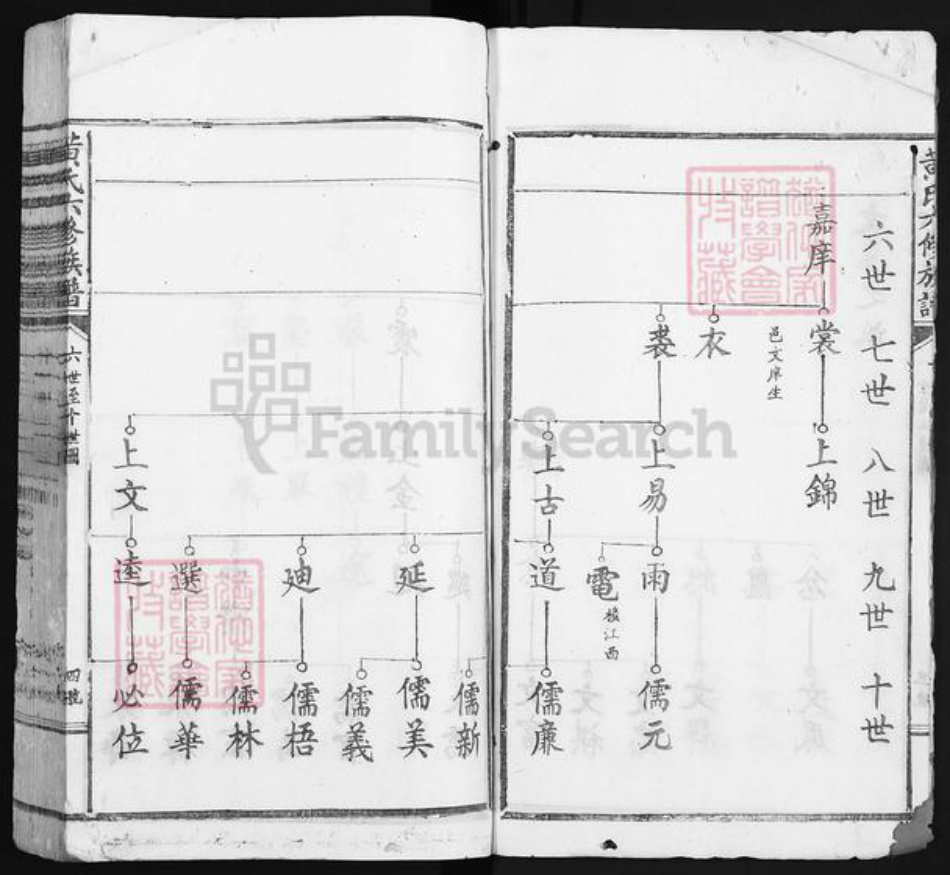 黃氏六修族譜
六世
七世
八世
九世
十世
嘉庠
裳
邑文庠生
衣
裘
上錦
上易
上古
雨
電
道
儒元
儒廉
延
廸
選
逵
上文
儒新
儒美
儒義
儒梧
儒林
儒華
必位
黃氏六修族譜
六世至十世圖
四號
FamilySearch